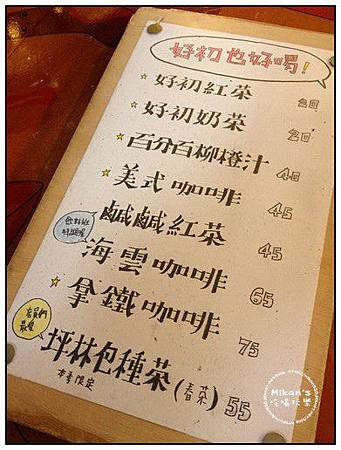 好初也好喝!
好初紅茶 20
好初奶茶 20
百分百柳橙汁 40
美式咖啡 45
鹹鹹紅茶 45
海雲咖啡 65
拿鐵咖啡 75
坪林包種茶(春茶) 55
本季限定
Mikan's
吃喝玩樂